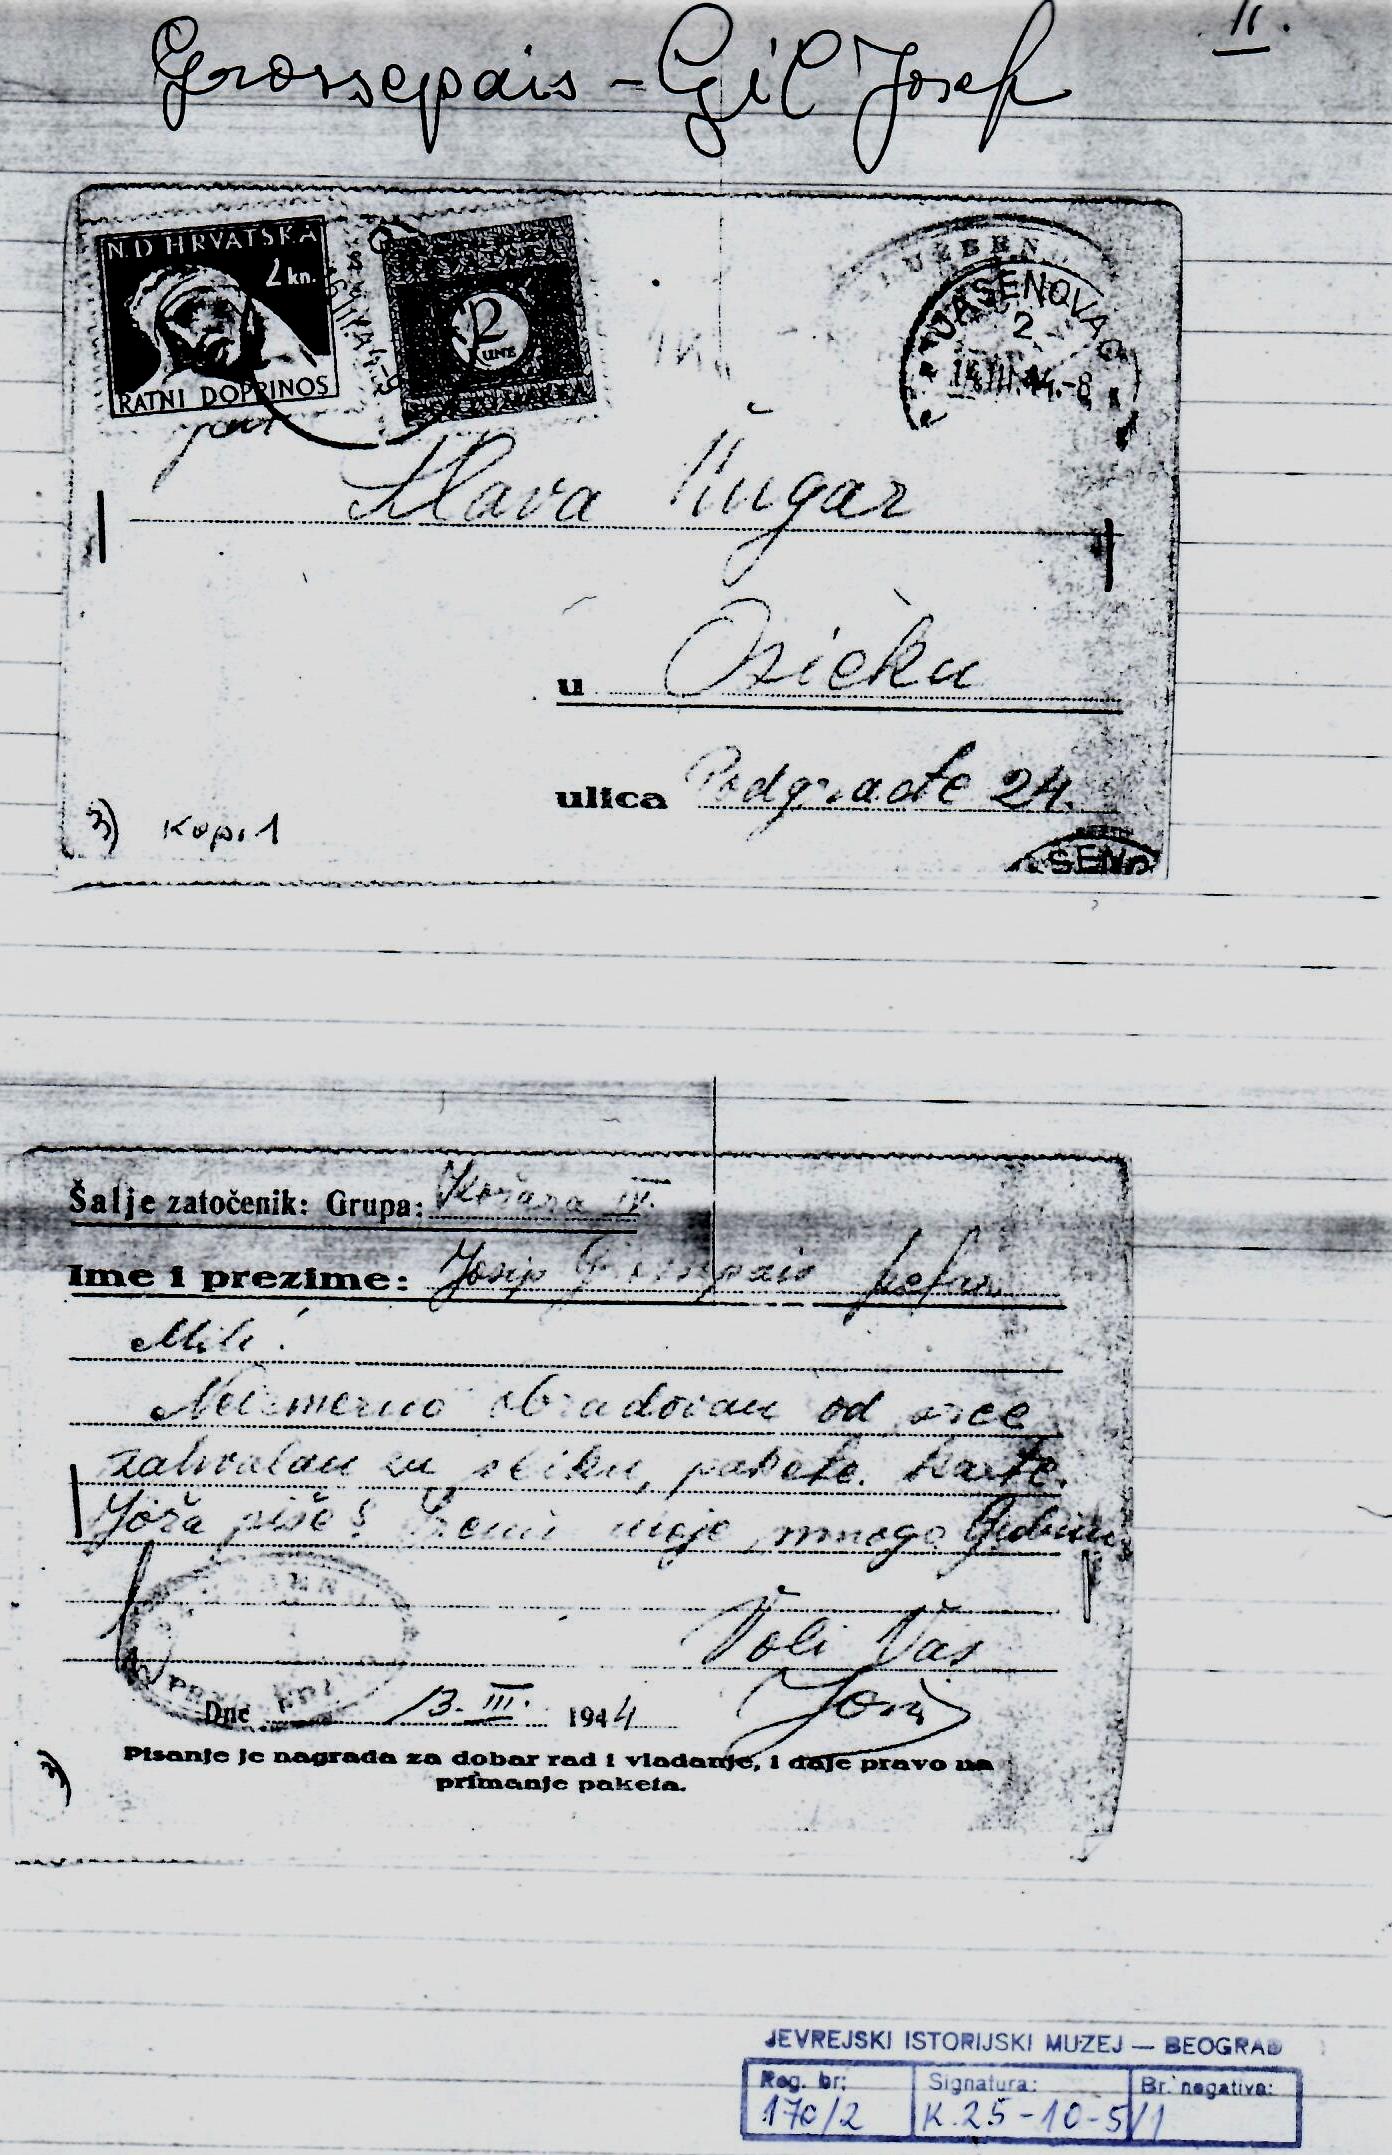 II.
Grossepais - Gil Josef
N.D HRVATSKA
2 kn.
RATNI DOPRINOS
2
KUNE
PORTO MARKA
SLUŽBEN
JASENOVAC
2
14.III.44.-8
Slava Ungar
u Osieku
ulica Podgrađe 24.
3) Kop. 1
SENO
Šalje zatočenik: Grupa: Kožara IV.
Ime i prezime: Josip Grossepais
Mili!
Neizmerno obradovan od srce
zahvalan za sliku, pakete. karte.
Joža piše? Ireni moje mnogo ljubim
Voli Vas
Dne 13. III. 1944
Pisanje je nagrada za dobar rad i vladanje, i daje pravo na
primanje paketa.
3)
JEVREJSKI ISTORIJSKI MUZEJ — BEOGRAD
Reg. br: Signatura: Br. negativa:
170/2 K.25-10-5/1